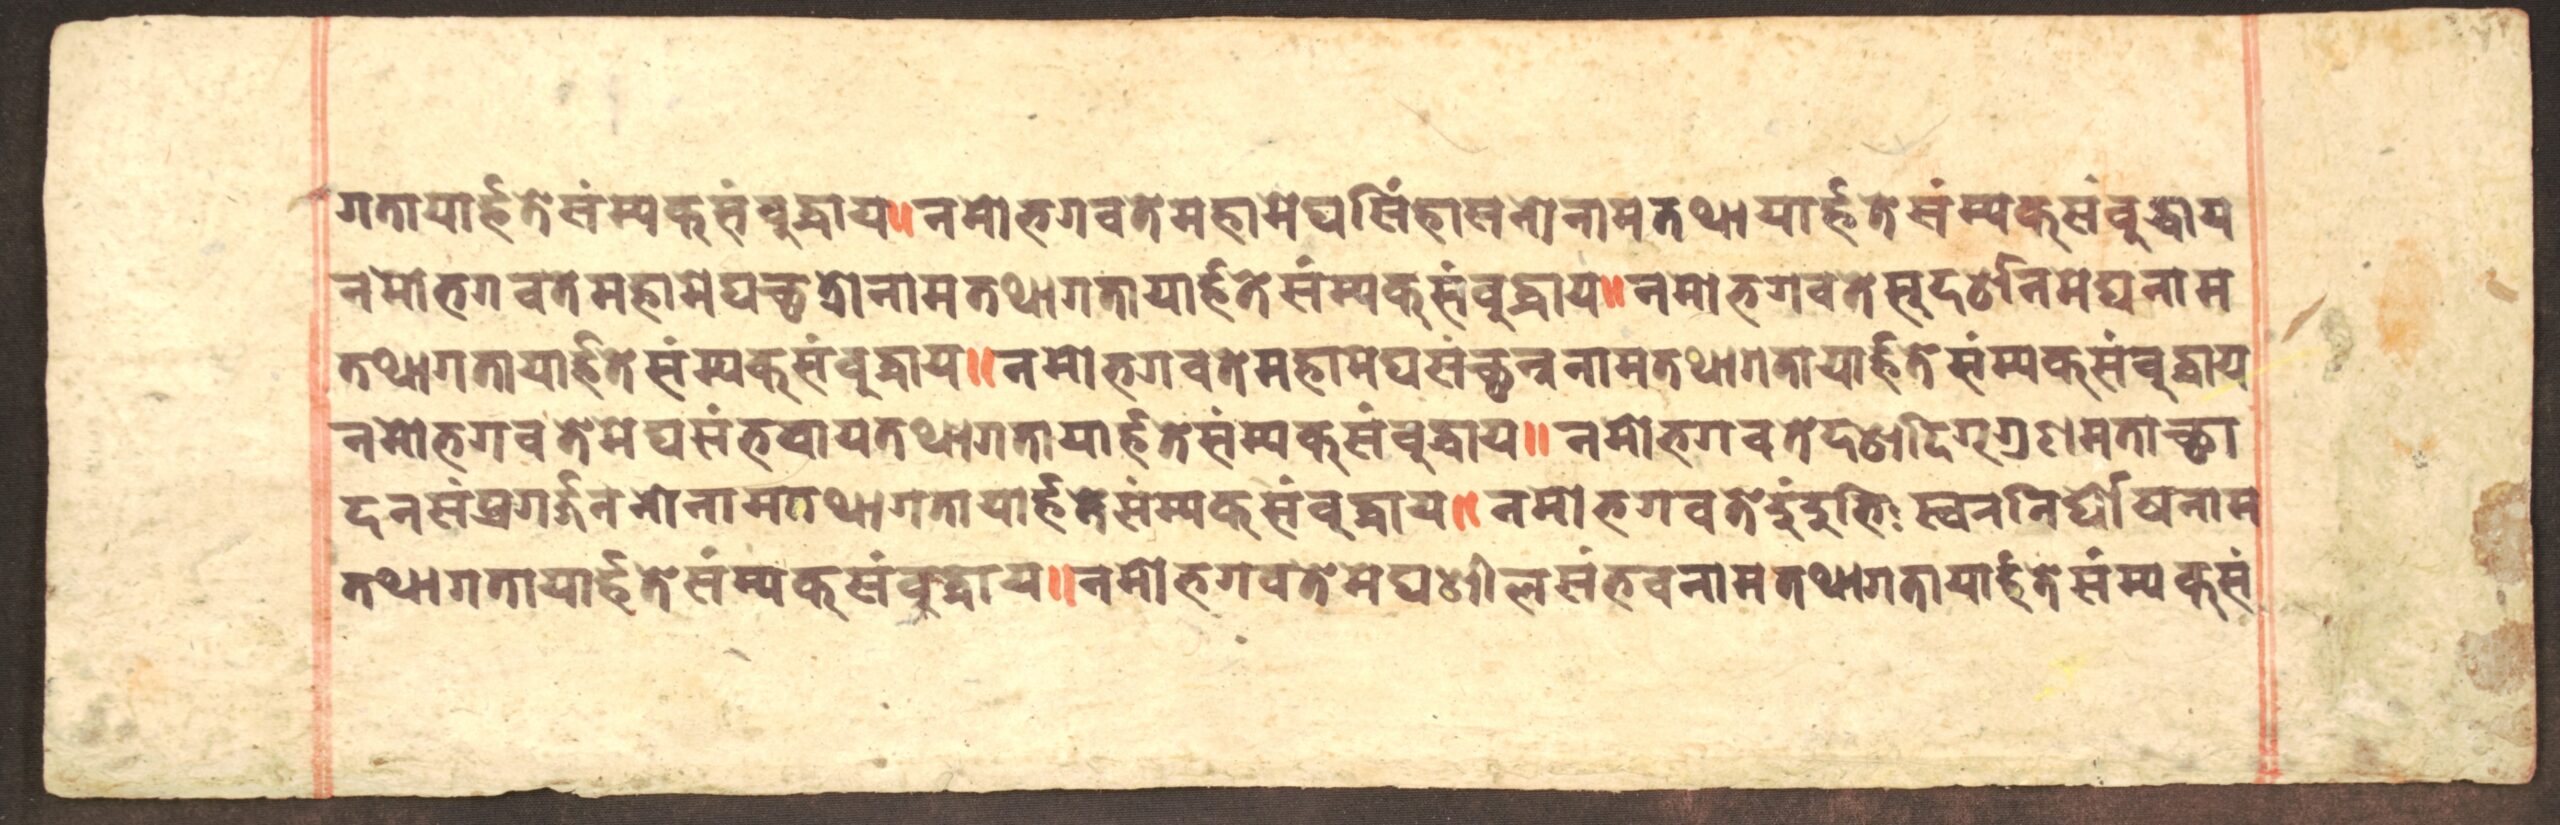 गतायार्हते संम्यक्संबुद्धाय॥ नमो भगवते महामेघसिंहासनो नाम तथायार्हते संम्यक्संबुद्धाय
नमो भगवते महामेघच्छत्रो नाम तथागतायार्हते संम्यक्संबुद्धाय॥ नमो भगवते सूदर्शनिमेघ नाम
तथागतायार्हते संम्यक्संबुद्धाय॥ नमो भगवते महामेघसंच्छन्न नाम तथागतायार्हते संम्यक्संबुद्धाय
नमो भगवते मेघसंभवाय तथागतायार्हते संम्यक्संबुद्धाय॥ नमो भगवते दशदिग् मताच्छा
दनसंप्रगर्ज्जननो नाम तथागतायार्हते संम्यक्संबुद्धाय॥ नमो भगवते दुंदुभिः स्वननिर्घोष नाम
तथागतायार्हते संम्यक्संबुद्धाय॥ नमो भगवते मेघशीलसंभव नाम तथागतायार्हते संम्यक्सं